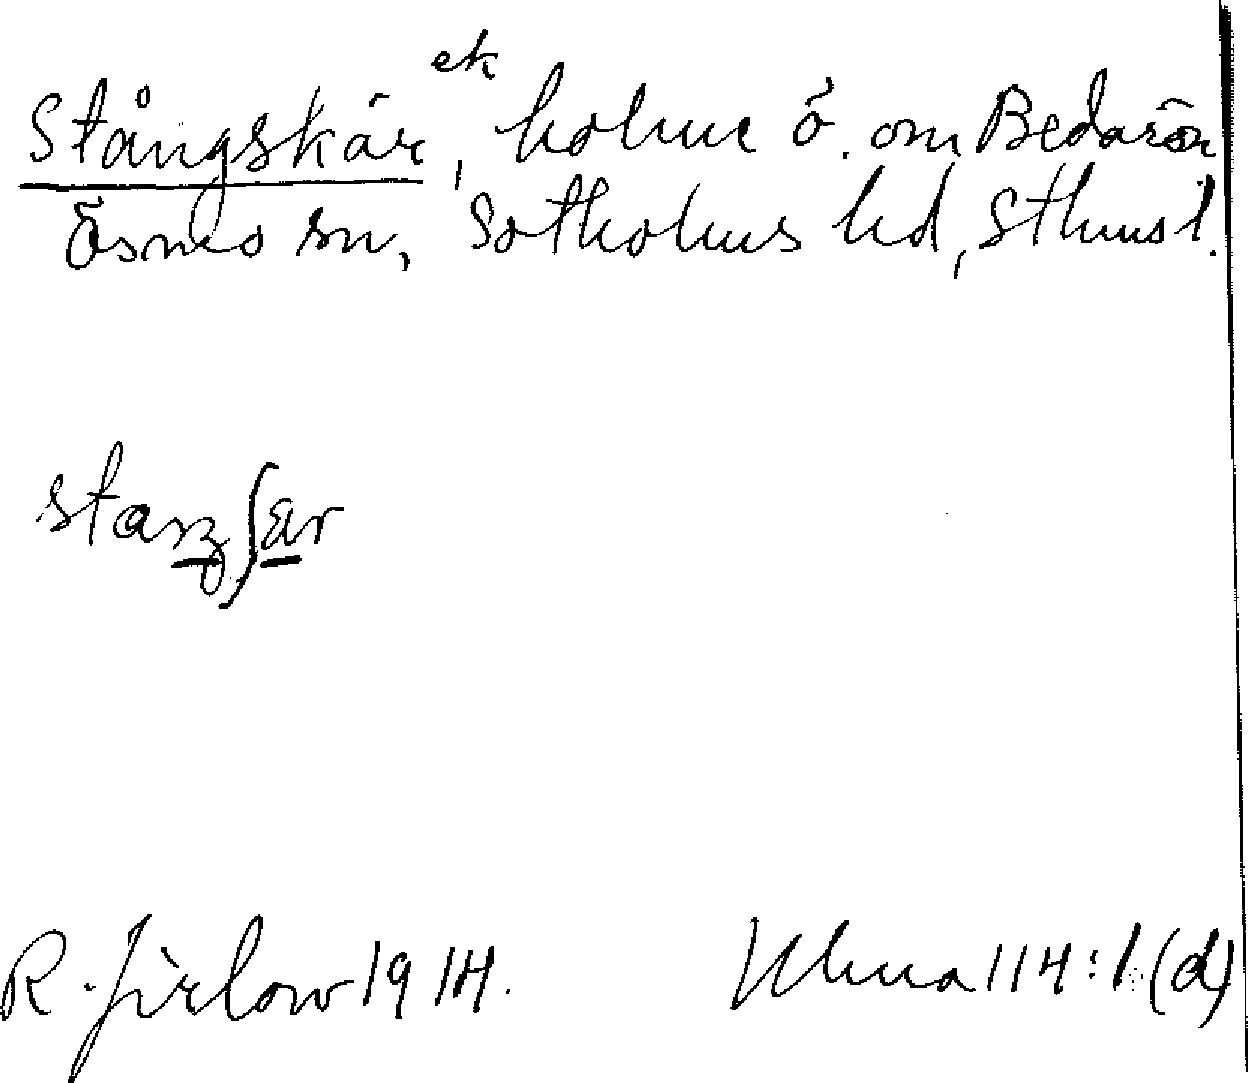 Stångskär ek, holme ö. om Bedarön
Ösmo sn, Sotholms hd, Sthms l.
staŋʃær
R. Jirlow 1914.
Ulma 114:1 (d)